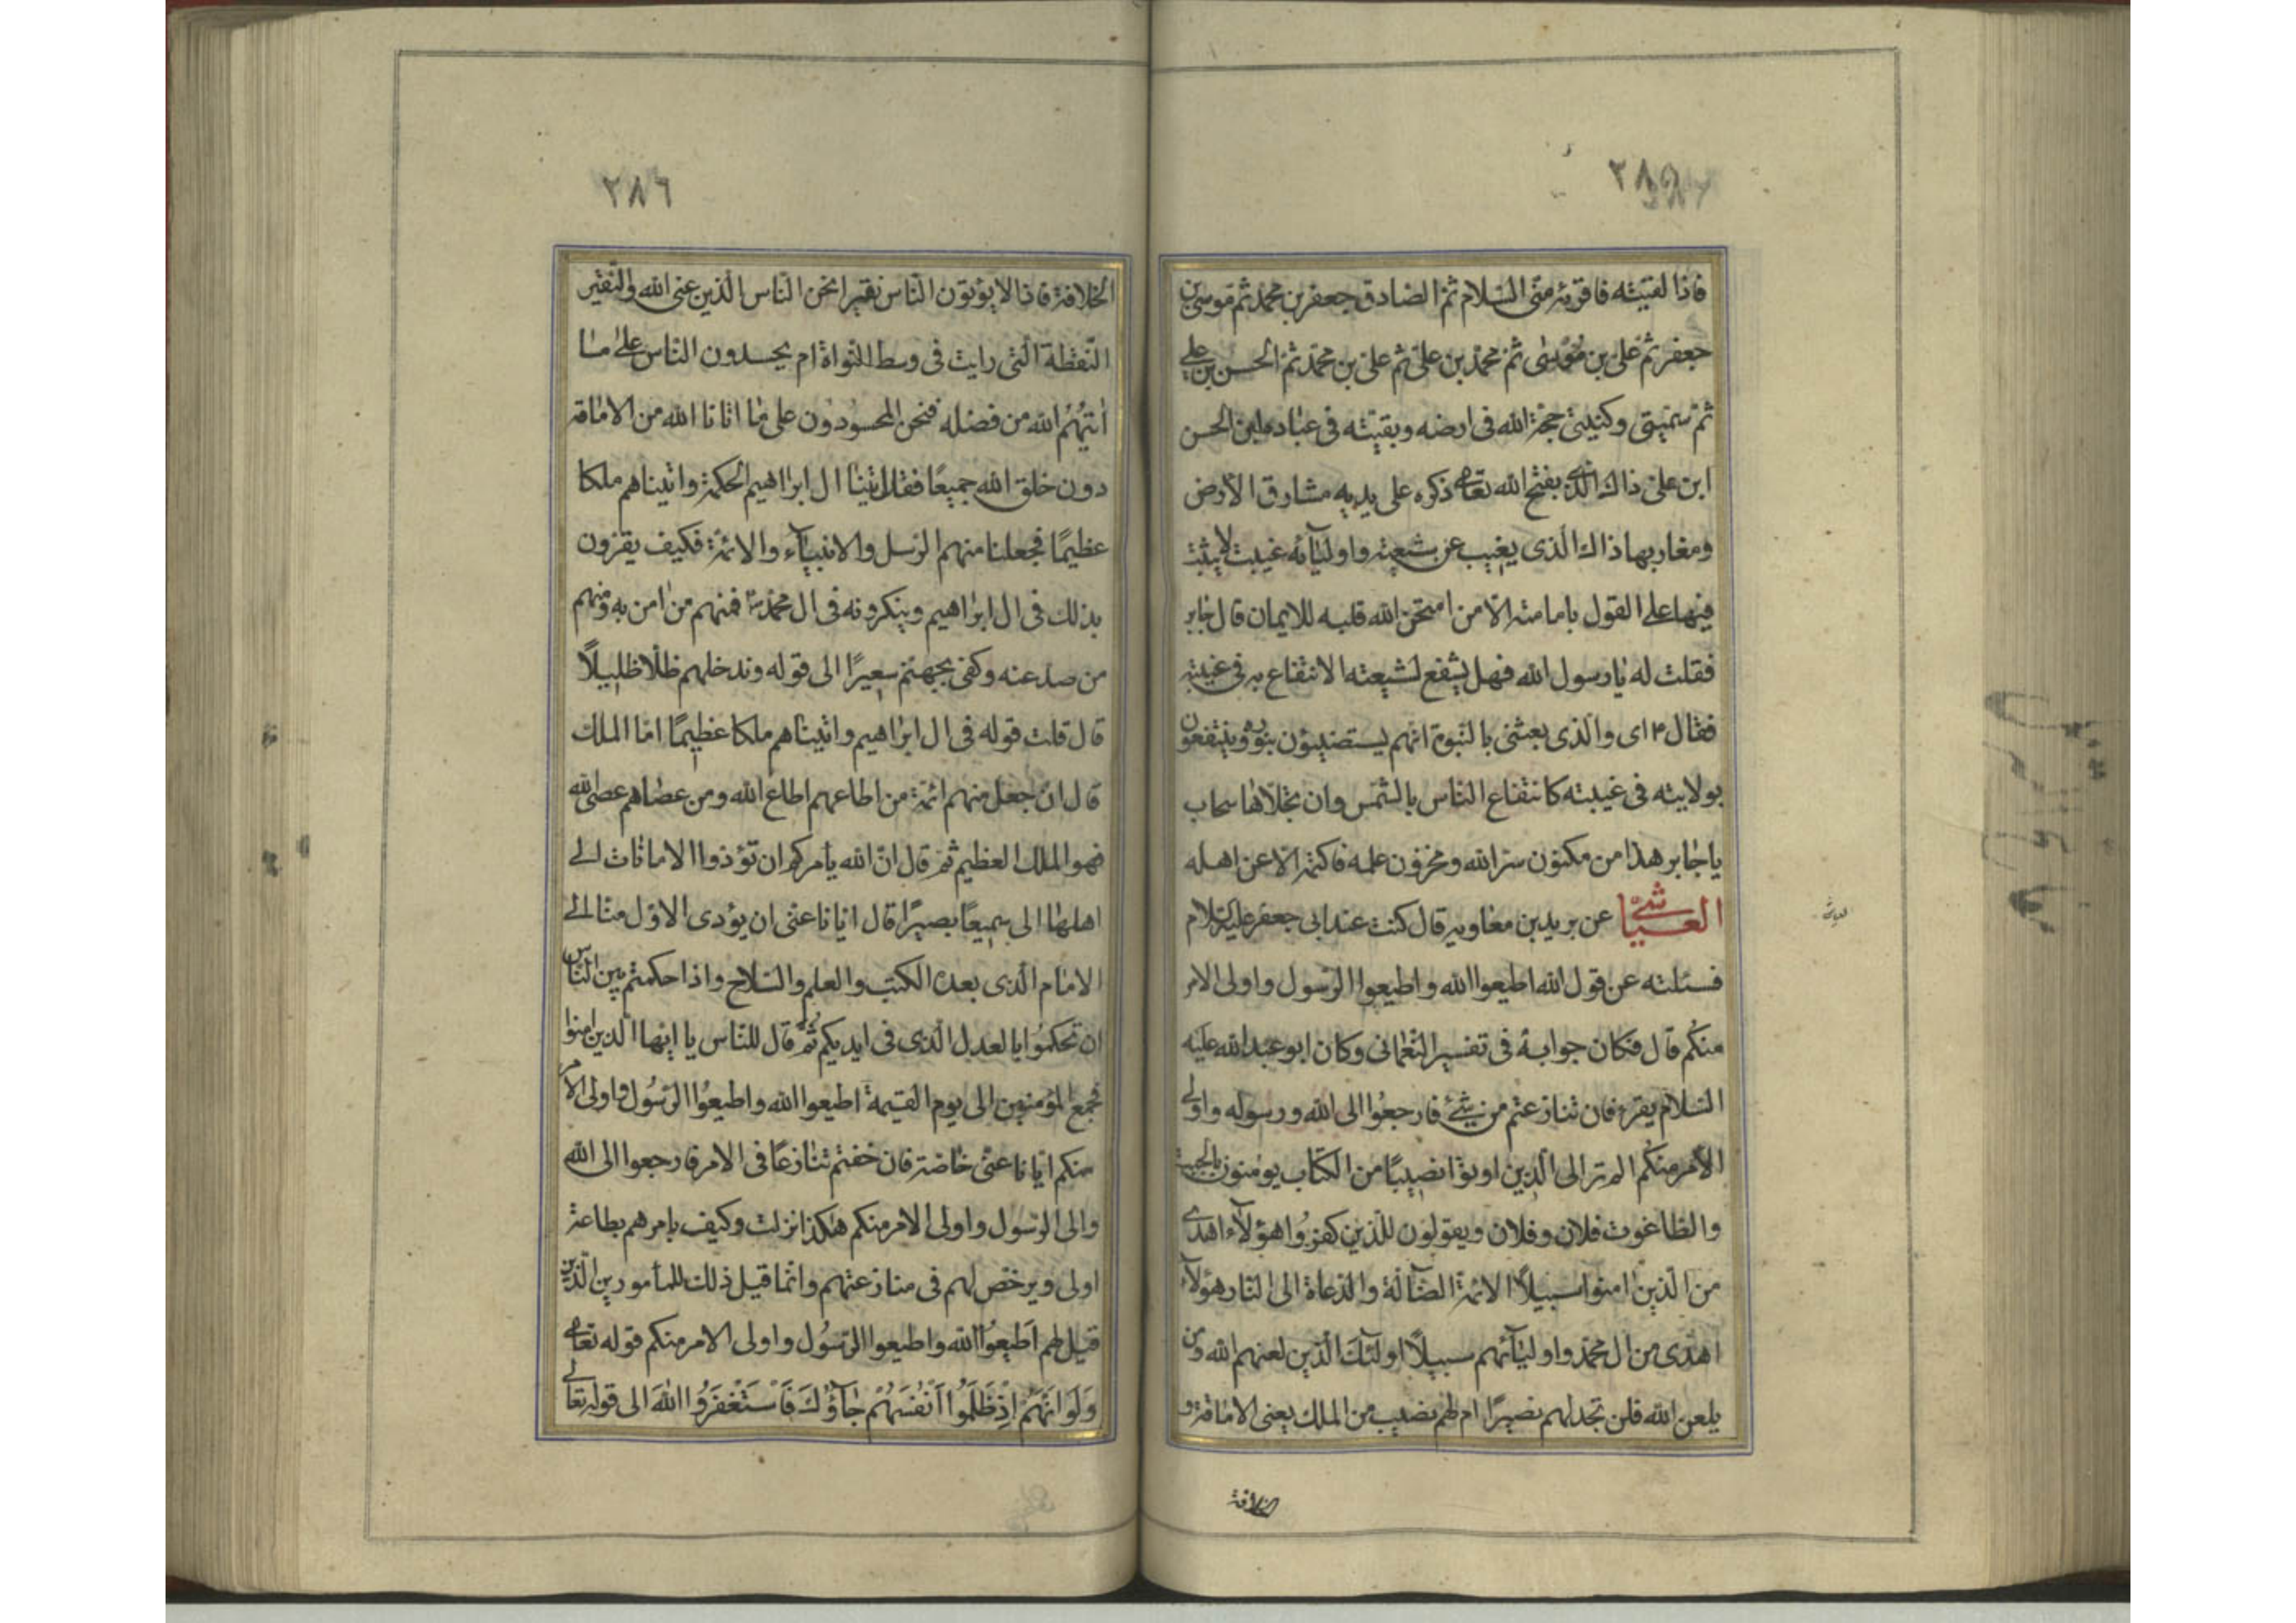 ٢٨٥
فاذا لقيته فاقرئه منى السلام ثم الصادق جعفر بن محمد ثم موسى بن
جعفر ثم على بن موسى ثم محمد بن على ثم على بن محمد ثم الحسن بن على
ثم سميتى وكنيتى حجة الله فى ارضه وبقيته فى عباده ابن الحسن
ابن على ذاك الذى يفتح الله تعالى ذكره على يديه مشارق الارض
ومغاربها ذاك الذى يغيب عن شيعته واوليآئه غيبت لا يثبت
فيها على القول بامامته الا من امتحن الله قلبه للايمان قال جابر
فقلت له يا رسول الله فهل يشفع لشيعته الانتفاع به فى غيبته
فقال اى والذى بعثنى بالنبوة انهم يستضيئون بنوره وينتفعون
بولايته فى غيبته كانتفاع الناس بالشمس وان تجلاها سحاب
يا جابر هذا من مكنون سر الله ومخزون علمه فاكتمه الا عن اهله
العياشى عن بريد بن معاويه قال كنت عند ابى جعفر عليه السلام
العياشى
فسئلته عن قول الله اطيعوا الله واطيعوا الرسول واولى الامر
منكم قال فكان جوابه فى تفسير النعمانى وكان ابو عبد الله عليه
السلام يقرء فان تنازعتم من شئ فارجعوا الى الله ورسوله واولى
الامر منكم الم تر الى الذين اوتوا نصيبًا من الكتاب يومنون بالجبت
والطاغوت فلان وفلان ويقولون للذين كفروا هؤلاء اهدى
من الذين امنوا سبيلًا الائمة الضآلة والدعاة الى النار هؤلآء
اهدى من ال محمد واوليآئهم سبيلًا اولئك الذين لعنهم الله ومن
يلعن الله فلن تجد لهم نصيرًا ام لهم نصيب من الملك يعنى الامامة و
الخلافة
٢٨٦
الخلافة فاذا لا يؤتون الناس نقيرا نحن الناس الذين عنى الله والنقير
النقطة التى رايت فى وسط النواة ام يحسدون الناس على ما
اتيهم الله من فضله فنحن المحسودون على ما اتانا الله من الامامة
دون خلق الله جميعًا فقال اتينا ال ابراهيم الحكمة واتيناهم ملكا
عظيمًا فجعلنا منهم الرسل والانبيآء والائمة فكيف يقرون
بذلك فى ال ابراهيم وينكرونه فى ال محمد فمنهم من امن به ومنهم
من صد عنه وكفى بجهنم سعيرًا الى قوله وندخلهم ظلا ظليلًا
قال قلت قوله فى ال ابراهيم واتيناهم ملكا عظيمًا اما الملك
قال ان جعل منهم ائمة من اطاعهم اطاع الله ومن عصاهم عصى الله
فهو الملك العظيم ثم قال ان الله يامركم ان تؤدوا الامانات الى
اهلها الى سميعًا بصيرًا قال ايانا عنى ان يؤدى الاول منا الى
الامام الذى بعده الكتب والعلم والسلاح واذا حكمتم بين الناس
ان تحكموا بالعدل الذى فى ايديكم ثم قال للناس يا ايها الذين امنوا
فجمع المؤمنين الى يوم القيمة اطيعوا الله واطيعوا الرسول واولى الامر
منكم ايانا عنى خاصة فان خفتم تنازعًا فى الامر فارجعوا الى الله
والى الرسول واولى الامر منكم هكذا نزلت وكيف يامرهم بطاعة
اولى ويرخص لهم فى منازعتهم وانما قيل ذلك للمأمورين الذين
قيل لهم اطيعوا الله واطيعوا الرسول واولى الامر منكم قوله تعالى
وَلَوْ اَنَّهُمْ اِذْ ظَلَمُوا اَنْفُسَهُمْ جَآؤُكَ فَاسْتَغْفَرُوا اللهَ الى قوله تعالى